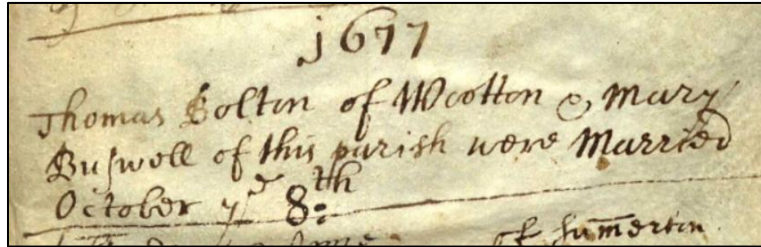 1677
Thomas Boltin of Wootton & Mary
Buswell of this parish were Married
October yᵉ 8th
of Sumerton